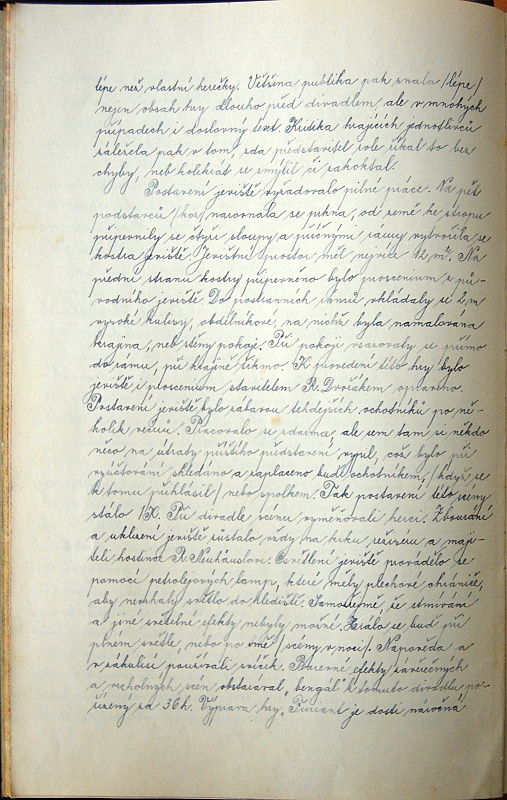 lépe než vlastní herečky. Většina publika pak znala /lépe/
nejen obsah hry dlouho před divadlem, ale v mnohých
případech i doslovný text. Kritika hrajících jednotlivců
záležela pak v tom, zda představitel role říkal to bez
chyby, neb kolikrát se zmýlil či zakoktal.
Postavení jeviště vyžadovalo pilné práce. Na pět
podstavců /koz/ narovnala se prkna, od země ke stropu
připevnily se čtyři sloupy a příčnými rámy vytvořila se
kostra jeviště. Jevištní prostor měl nejvíce 12 m². Na
přední stranu kostry připevněno bylo proscenium z pů-
vodního jeviště. Do postranních rámů vkládaly se 2 m
vysoké kulisy, obdélníkové, na nichž byla namalována
krajina, neb stěny pokoje. Při pokoji vsazovaly se přímo
do rámu, při krajině šikmo. K provedení této hry bylo
jeviště i proscenium stavitelem R. Dvořákem opraveno.
Postavení jeviště bylo zábavou tehdejších ochotníků po ně-
kolik večerů. Pracovalo se zdarma, ale sem tam si někdo
něco na útraty příštího představení vypil, což bylo při
vyúčtování shledáno a zaplaceno buď ochotníkem, /když se
k tomu přihlásil/ nebo spolkem. Tak postavení této scény
stálo 1 K. Při divadle scénu vyměňovali herci. Zbourání
a uklizení jeviště zůstalo vždy na krku režiséru a maji-
teli hostince R. Neuhäuslovi. Osvětlení jeviště provádělo se
pomocí petrolejových lamp, které měly plechové chrániče,
aby nevrhaly světlo do hlediště. Samozřejmě, že stmívání
a jiné světelné efekty nebyly možné. Hrálo se buď při
plném světle, nebo po tmě /scény v noci/. Nápověda a
v zákulisí používali svíček. Barevné efekty závěrečných
a vrcholných scén obstarával „bengál“ k tomuto divadlu po-
řízený za 36 h. Výprava hry „Furiant“ je dosti náročná